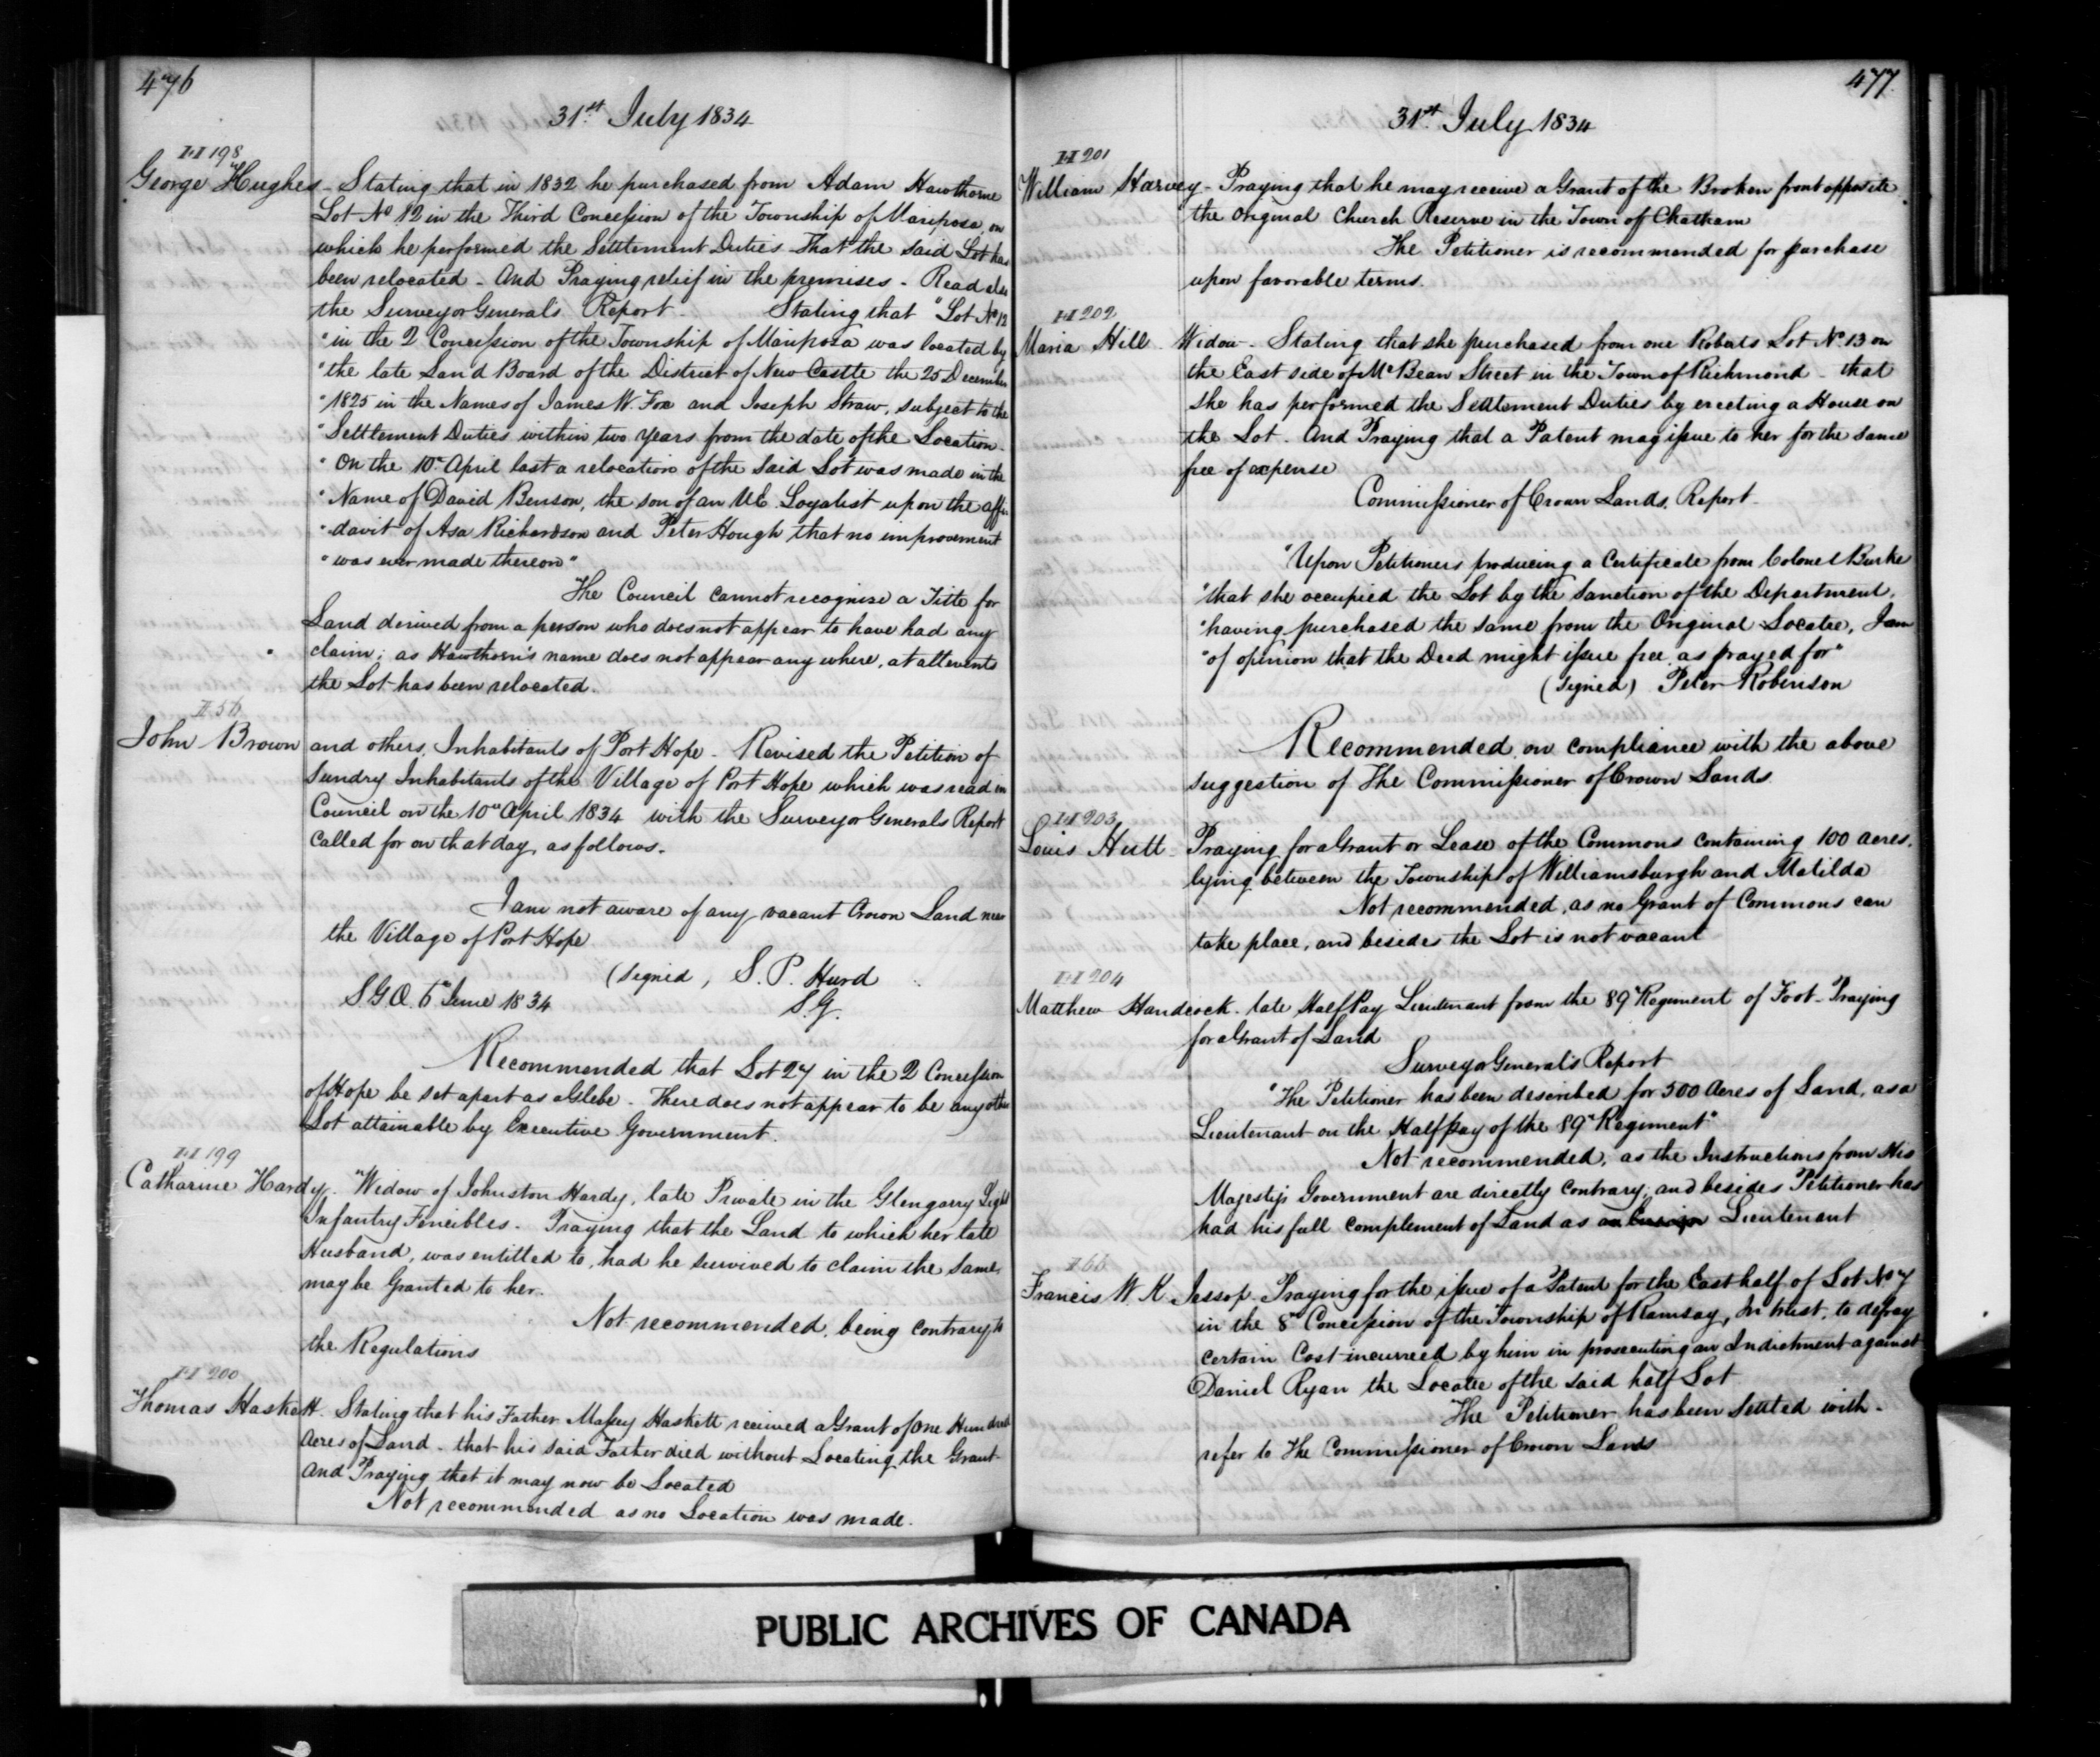 476
31st July 1834
H 198
George Hughes - Stating that in 1832 he purchased from Adam Hawthorne
Lot No 12 in the Third Concession of the Township of Mariposa, on
which he performed the Settlement Duties - That the said Lot has
been relocated - And Praying relief in the premises - Read also
the Surveyor Generals Report - Stating that "Lot No 12
"in the 2 Concession of the Township of Mariposa was located by
"the late Land Board of the District of New Castle the 25 December
"1825 in the Names of James W. Fox and Joseph Straw, subject to the
"Settlement Duties within two years from the date of the Location -
"On the 10th April last a relocation of the said Lot was made in the
"Name of David Benson, the son of an UE Loyalist upon the affi-
"davit of Asa Richardson and Peter Hough that no improvement
"was ever made thereon"
The Council cannot recognise a Title for
Land derived from a person who does not appear to have had any
claim; as Hawthorn's name does not appear any where, at all events
the Lot has been relocated.
B 56
John Brown and others, Inhabitants of Port Hope - Revised the Petition of
Sundry Inhabitants of the Village of Port Hope which was read in
Council on the 10th April 1834 with the Surveyor Generals Report
called for on that day, as follows.
I am not aware of any vacant Crown Land near
the Village of Port Hope
(signed, S. P. Hurd
S.G.O. 6th June 1834 S.G.
Recommended that Lot 27 in the 2 Concession
of Hope be set apart as a Glebe - There does not appear to be any other
Lot attainable by Executive Government.
H 199
Catharine Hardy. Widow of Johnston Hardy, late Private in the Glengarry Light
Infantry Fencibles. Praying that the Land to which her late
Husband, was entitled to, had he survived to claim the same,
may be Granted to her.
Not recommended, being contrary to
the Regulations
H 200
Thomas Haskett. Stating that his Father Massey Haskett received a Grant of One Hundred
Acres of Land - that his said Father died without Locating the Grant -
And Praying that it may now be Located
Not recommended as no Location was made.
477
31st July 1834
H 201
William Harvey - Praying that he may receive a Grant of the Broken front opposite
the original Church Reserve in the Town of Chatham
The Petitioner is recommended for purchase
upon favorable terms.
H 202
Maria Hill - Widow - Stating that she purchased from one Roberts Lot No 13 on
the East side of McBean Street in the Town of Richmond - that
she has performed the Settlement Duties by erecting a House on
the Lot. And Praying that a Patent may issue to her for the same
free of expense
Commissioner of Crown Lands, Report -
"Upon Petitioners producing a Certificate from Colonel Burke
"that she occupied the Lot by the sanction of the Department,
"having purchased the same from the Original Locatee, I am
"of opinion that the Deed might issue free as prayed for"
(signed) Peter Robinson
Recommended on compliance with the above
suggestion of The Commissioner of Crown Lands
H 203
Louis Hutt - Praying for a Grant or Lease of the Commons containing 100 acres,
lying between the Township of Williamsburgh and Matilda
Not recommended, as no Grant of Commons can
take place, and besides the Lot is not vacant
H 204
Matthew Handcock - late Half Pay Lieutenant from the 89th Regiment of Foot - Praying
for a Grant of Land
Surveyor General's Report
"The Petitioner has been described for 500 Acres of Land, as a
Lieutenant on the Half pay of the 89th Regiment"
Not recommended, as the Instructions from His
Majesty's Government are directly contrary; and besides Petitioner has
had his full complement of Land as an Ensign Lieutenant
I 66
Francis W. K. Jessop - Praying for the issue of a Patent for the East half of Lot No 7
in the 8th Concession of the Township of Ramsay, In trust, to defray
certain Cost incurred by him in prosecuting an Indictment against
Daniel Ryan the Locatee of the said half Lot
The Petitioner has been settled with -
refer to The Commissioner of Crown Lands
PUBLIC ARCHIVES OF CANADA